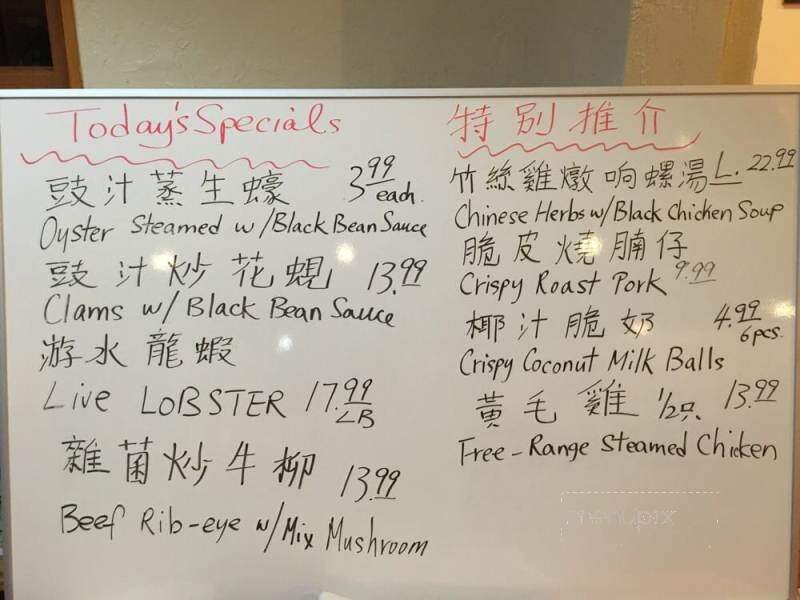 Today's Specials
豉汁蒸生蠔 3.99 each.
Oyster Steamed w/Black Bean Sauce
豉汁炒花蜆 13.99
Clams w/ Black Bean Sauce
游水龍蝦
Live LOBSTER 17.99 LB
雜菌炒牛柳 13.99
Beef Rib-eye w/Mix Mushroom
特别推介
竹絲雞燉响螺湯 L. 22.99
Chinese Herbs w/Black Chicken Soup
脆皮燒腩仔
Crispy Roast Pork 9.99
椰汁脆奶 4.99 6pcs.
Crispy Coconut Milk Balls
黃毛雞 1/2只 13.99
Free-Range Steamed Chicken
menupix